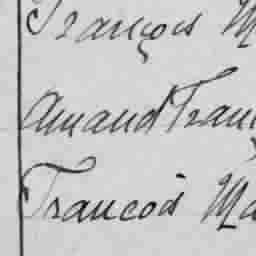 François M
Amand Fran
Francois Ma